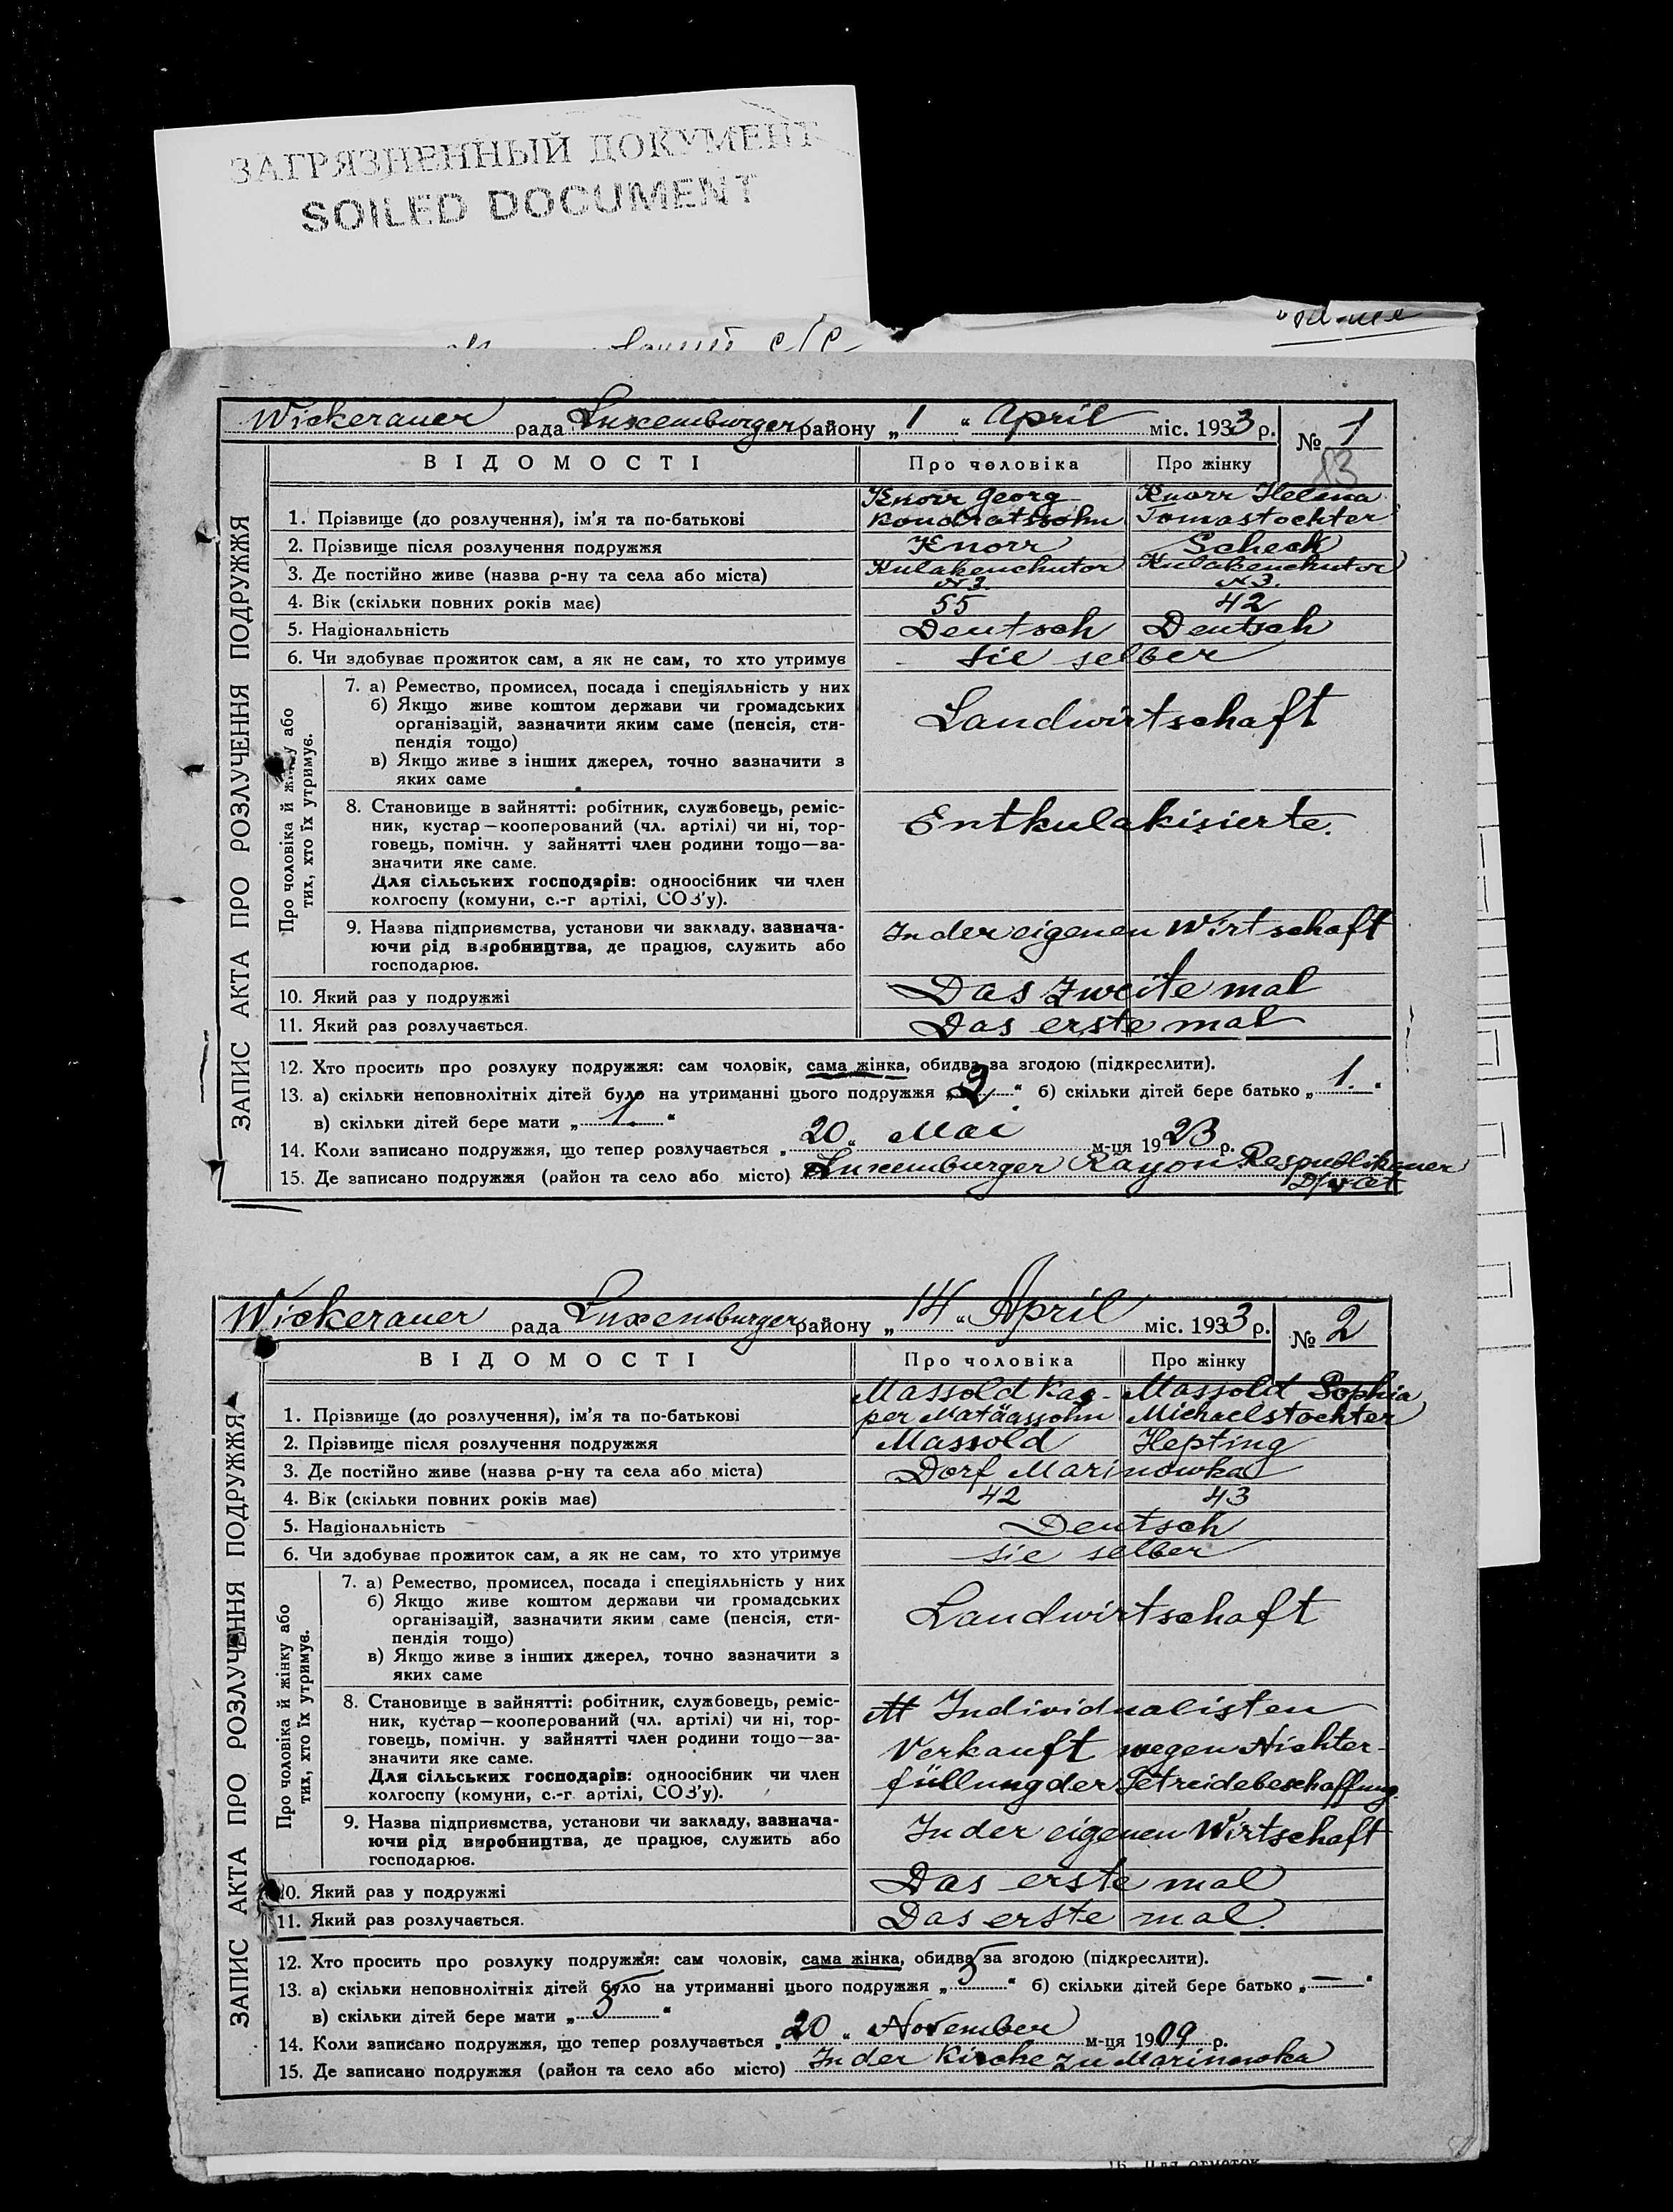 ЗАГРЯЗНЕННЫЙ ДОКУМЕНТ
SOILED DOCUMENT
с/с
Wickerauer рада Luxemburger району „ 1 “ April міс. 1933 р. № 1
13
ВІДОМОСТІ Про чоловіка Про жінку
ЗАПИС АКТА ПРО РОЗЛУЧЕННЯ ПОДРУЖЖЯ
Knorr Georg Knorr Helena
1. Прізвище (до розлучення), ім'я та по-батькові Kondratssohn Tomastochter
2. Прізвище після розлучення подружжя Knorr Scheck
3. Де постійно живе (назва р-ну та села або міста) Kulakenchutor Kulakenchutor
N 3. N 3.
4. Вік (скільки повних років має) 55 42
5. Національність Deutsch Deutsch
6. Чи здобуває прожиток сам, а як не сам, то хто утримує sie selber
Про чоловіка й жінку або
тих, хто їх утримує.
7. а) Ремество, промисел, посада і спеціяльність у них
б) Якщо живе коштом держави чи громадських Landwirtschaft
організацій, зазначити яким саме (пенсія, сти-
пендія тощо)
в) Якщо живе з інших джерел, точно зазначити з
яких саме
8. Становище в зайнятті: робітник, службовець, реміс- Entkulakisierte.
ник, кустар—кооперований (чл. артілі) чи ні, тор-
говець, помічн. у зайнятті член родини тощо—за-
значити яке саме.
Для сільських господарів: одноосібник чи член
колгоспу (комуни, с.-г артілі, СОЗ'у).
9. Назва підприємства, установи чи закладу, зазнача- In der eigenen Wirtschaft
ючи рід виробництва, де працює, служить або
господарює.
10. Який раз у подружжі Das zweite mal
11. Який раз розлучається. Das erste mal
12. Хто просить про розлуку подружжя: сам чоловік, сама жінка, обидва за згодою (підкреслити).
13. а) скільки неповнолітніх дітей було на утриманні цього подружжя „ 2 “ б) скільки дітей бере батько „ 1. “
в) скільки дітей бере мати „ 1 “
14. Коли записано подружжя, що тепер розлучається „ 20 “ Mai м-ця 1923 р.
15. Де записано подружжя (район та село або місто) Luxemburger Rayon Respublikaner
Wickerauer рада Luxemburger району „ 14 “ April міс. 1933 р. № 2
ВІДОМОСТІ Про чоловіка Про жінку
ЗАПИС АКТА ПРО РОЗЛУЧЕННЯ ПОДРУЖЖЯ
Massold Kas- Massold Sophia
1. Прізвище (до розлучення), ім'я та по-батькові per Matäassohn Michaelstochter
2. Прізвище після розлучення подружжя Massold Hepting
3. Де постійно живе (назва р-ну та села або міста) Dorf Marinowka
4. Вік (скільки повних років має) 42 43
5. Національність Deutsch
6. Чи здобуває прожиток сам, а як не сам, то хто утримує sie selber
Про чоловіка й жінку або
тих, хто їх утримує.
7. а) Ремество, промисел, посада і спеціяльність у них
б) Якщо живе коштом держави чи громадських Landwirtschaft
організацій, зазначити яким саме (пенсія, сти-
пендія тощо)
в) Якщо живе з інших джерел, точно зазначити з
яких саме
8. Становище в зайнятті: робітник, службовець, реміс- Individualisten
ник, кустар—кооперований (чл. артілі) чи ні, тор-
говець, помічн. у зайнятті член родини тощо—за- Verkauft wegen Nichter-
значити яке саме.
Для сільських господарів: одноосібник чи член füllung der Getreidebeschaffung
колгоспу (комуни, с.-г артілі, СОЗ'у).
9. Назва підприємства, установи чи закладу, зазнача- In der eigenen Wirtschaft
ючи рід виробництва, де працює, служить або
господарює.
10. Який раз у подружжі Das erste mal
11. Який раз розлучається. Das erste mal.
12. Хто просить про розлуку подружжя: сам чоловік, сама жінка, обидва за згодою (підкреслити).
13. а) скільки неповнолітніх дітей було на утриманні цього подружжя „ 3 “ б) скільки дітей бере батько „ — “
в) скільки дітей бере мати „ 3 “
14. Коли записано подружжя, що тепер розлучається „ 20 “ November м-ця 1909 р.
15. Де записано подружжя (район та село або місто) In der Kirche zu Marinowka